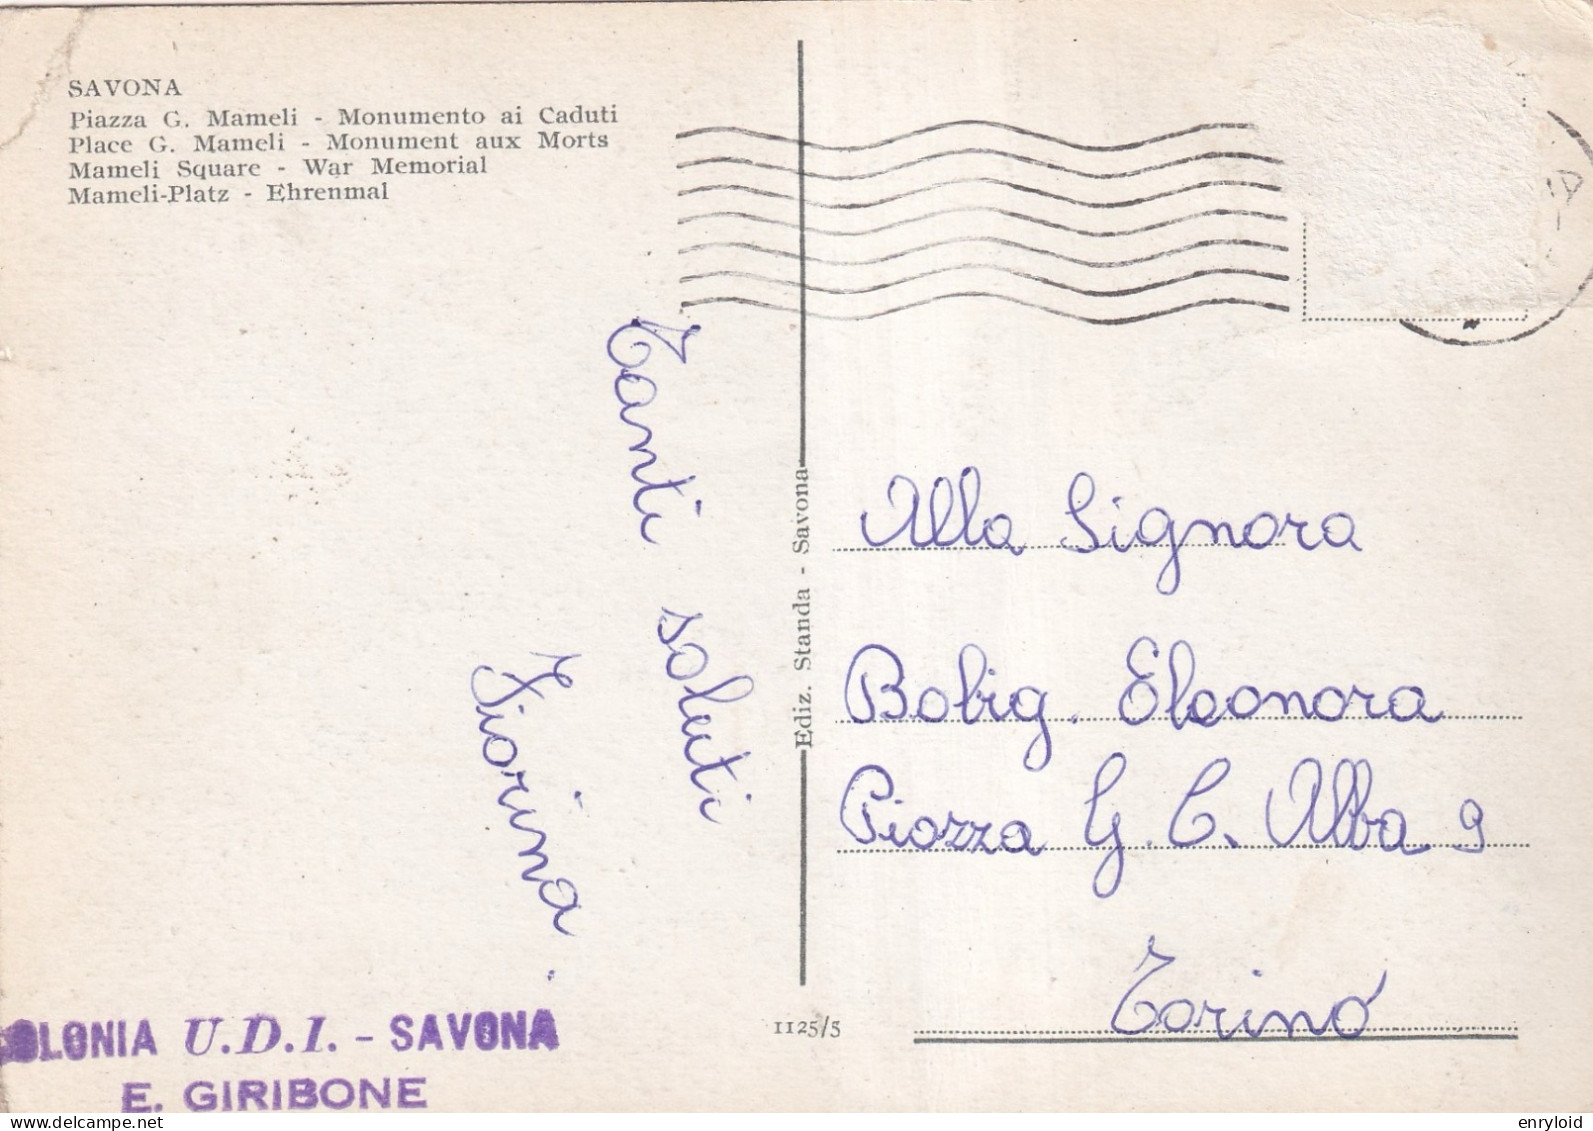 SAVONA
Piazza G. Mameli - Monumento ai Caduti
Place G. Mameli - Monument aux Morts
Mameli Square - War Memorial
Mameli-Platz - Ehrenmal
Tanti saluti
Fiorina.
COLONIA U.D.I. - SAVONA
E. GIRIBONE
Ediz. Standa - Savona
1125/5
Alla Signora
Bobig. Eleonora
Piazza G. C. Abba 9
Torino
www.delcampe.net
enryloid